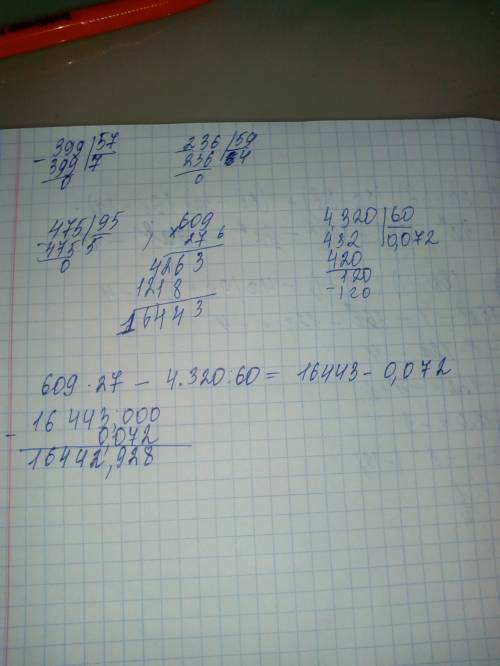 - 399 | 57
399 | 7
0
236 | 59
236 | 4
0
- 475 | 95
475 | 5
0
× 609
27 6
4263
1218
16443
4,320 | 60
432 | 0,072
420
120
- 120
609 · 27 - 4.320 : 60 = 16443 - 0,072
- 16 443,000
0,072
16442,928